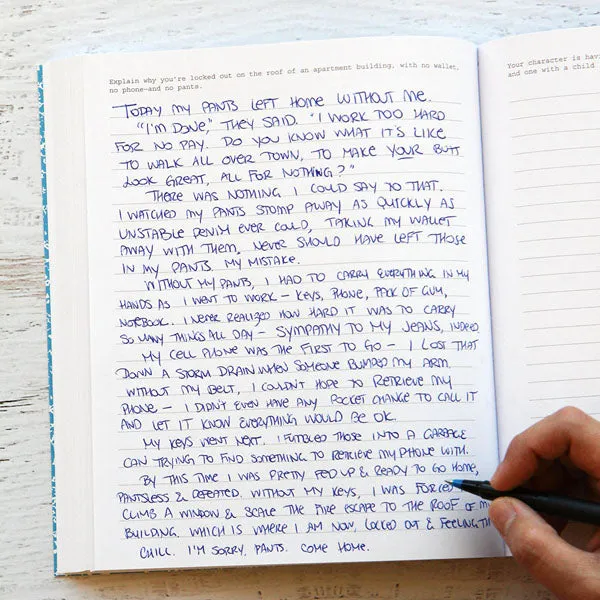 Explain why you're locked out on the roof of an apartment building, with no wallet,
no phone—and no pants.
TODAY MY PANTS LEFT HOME WITHOUT ME.
"I'M DONE," THEY SAID. "I WORK TOO HARD
FOR NO PAY. DO YOU KNOW WHAT IT'S LIKE
TO WALK ALL OVER TOWN, TO MAKE YOUR BUTT
LOOK GREAT, ALL FOR NOTHING?"
THERE WAS NOTHING I COULD SAY TO THAT.
I WATCHED MY PANTS STOMP AWAY AS QUICKLY AS
UNSTABLE DENIM EVER COULD, TAKING MY WALLET
AWAY WITH THEM, NEVER SHOULD HAVE LEFT THOSE
IN MY PANTS. MY MISTAKE.
WITHOUT MY PANTS, I HAD TO CARRY EVERYTHING IN MY
HANDS AS I WENT TO WORK – KEYS, PHONE, PACK OF GUM,
NOTEBOOK. I NEVER REALIZED HOW HARD IT WAS TO CARRY
SO MANY THINGS ALL DAY – SYMPATHY TO MY JEANS, INDEED.
MY CELL PHONE WAS THE FIRST TO GO – I LOST THAT
DOWN A STORM DRAIN WHEN SOMEONE BUMPED MY ARM.
WITHOUT MY BELT, I COULDN'T HOPE TO RETRIEVE MY
PHONE – I DIDN'T EVEN HAVE ANY POCKET CHANGE TO CALL IT
AND LET IT KNOW EVERYTHING WOULD BE OK.
MY KEYS WENT NEXT. I FUMBLED THOSE INTO A GARBAGE
CAN TRYING TO FIND SOMETHING TO RETRIEVE MY PHONE WITH.
BY THIS TIME I WAS PRETTY FED UP & READY TO GO HOME,
PANTSLESS & DEFEATED. WITHOUT MY KEYS, I WAS FORCED
CLIMB A WINDOW & SCALE THE FIRE ESCAPE TO THE ROOF OF
BUILDING. WHICH IS WHERE I AM NOW, LOCKED OUT & FEELING
CHILL. I'M SORRY, PANTS. COME HOME.
Your character is
and one with a child